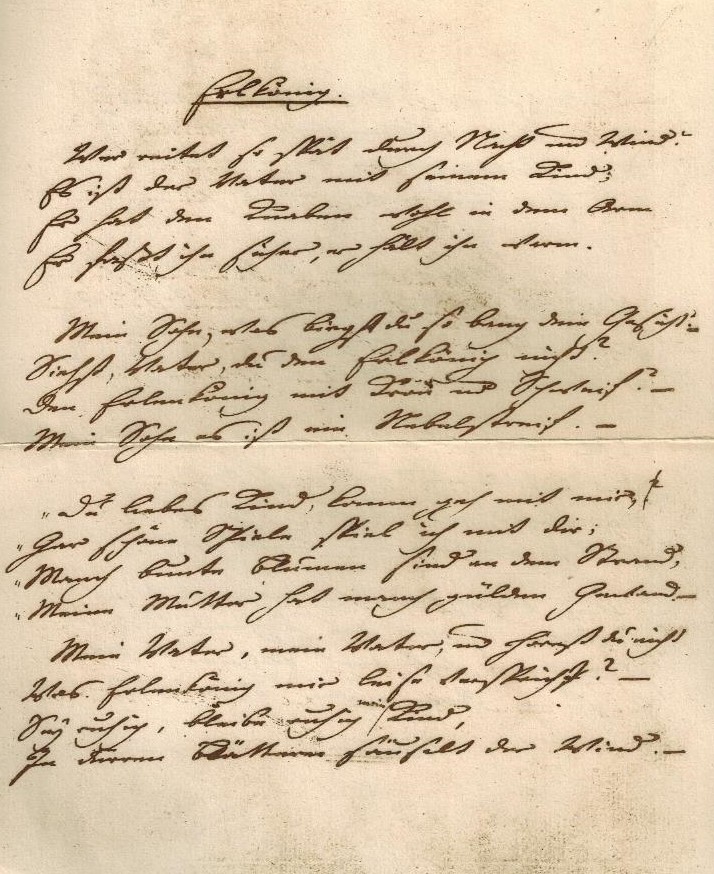 Erlkönig.
Wer reitet so spät durch Nacht und Wind?
Es ist der Vater mit seinem Kind;
Er hat den Knaben wohl in dem Arm
Er faßt ihn sicher, er hält ihn warm.
Mein Sohn, was birgst du so bang dein Gesicht? –
Siehst, Vater, du den Erlkönig nicht?
Den Erlenkönig mit Kron und Schweif? –
Mein Sohn es ist ein Nebelstreif. –
„Du liebes Kind, komm geh mit mir,
„Gar schöne Spiele spiel ich mit dir;
„Manch bunte Blumen sind an dem Strand,
„Meine Mutter hat manch gülden Gewand. –
Mein Vater, mein Vater, und hörest du nicht
Was Erlenkönig mir leise verspricht? –
Sey ruhig, bleibe ruhig mein Kind,
In dürren Blättern säuselt der Wind. –